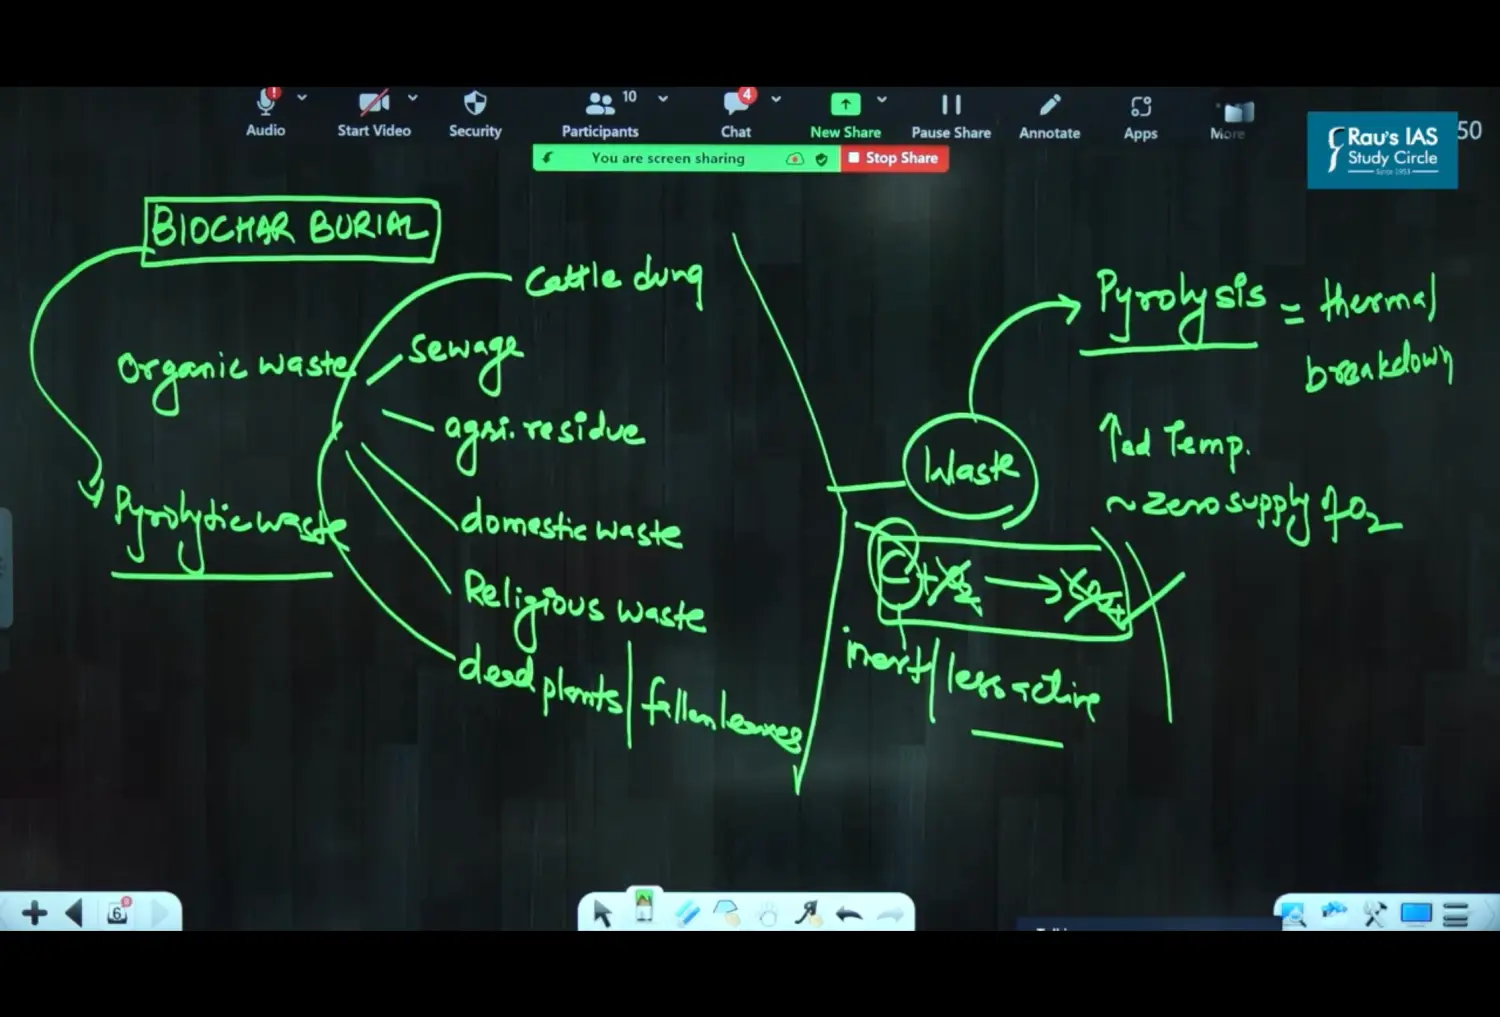 Audio
Start Video
Security
Participants
10
Chat
4
New Share
Pause Share
Annotate
Apps
More
You are screen sharing
Stop Share
Rau's IAS
Study Circle
Since 1953
50
BIOCHAR BURIAL
Organic waste
Pyrolytic waste
Cattle dung
Sewage
agri. residue
domestic waste
Religious waste
dead plants/fallen leaves
Waste
Pyrolysis = thermal
breakdown
↑ed Temp.
~ zero supply of O2
C + O2 → CO2
inert/less active
6